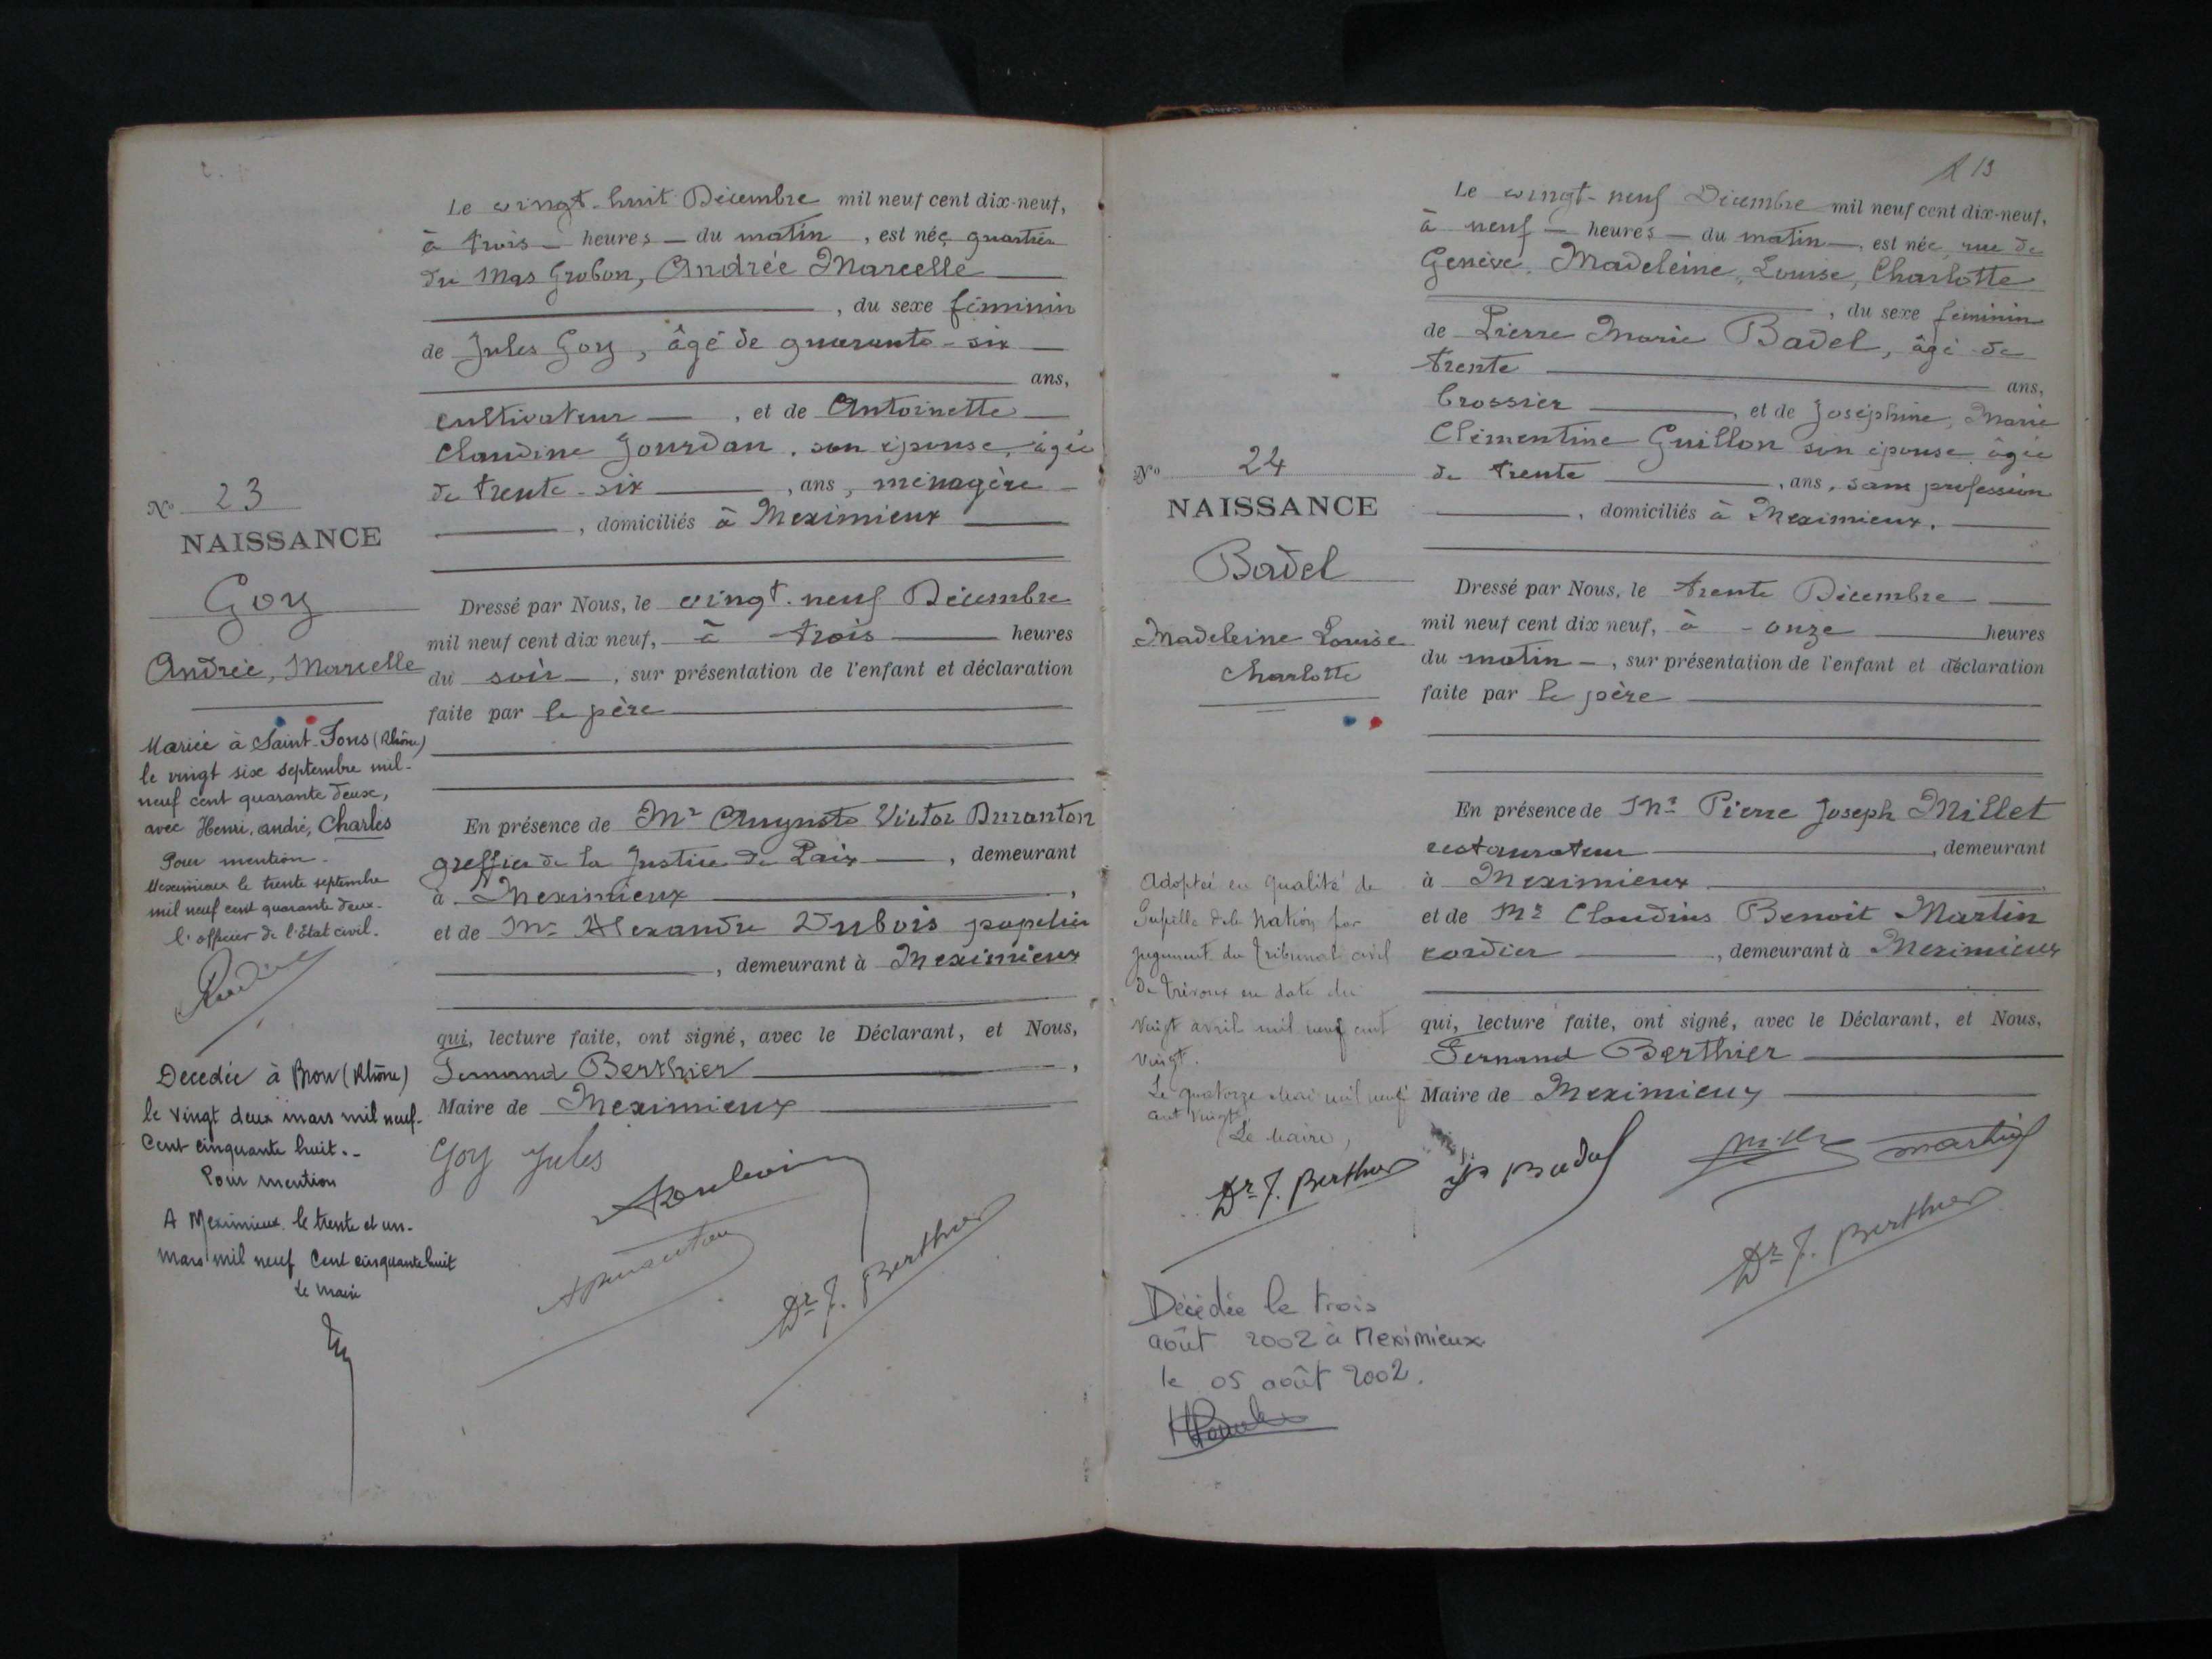 Le vingt-huit Décembre mil neuf cent dix-neuf,
à trois heures du matin, est née quartier
du Mas Grobon, Andrée Marcelle
, du sexe féminin
de Jules Goy, âgé de quarante-six
ans,
cultivateur, et de Antoinette
Claudine Jourdan, son épouse, âgée
de trente-six, ans, ménagère
, domiciliés à Meximieux
No 23
NAISSANCE
Goy
Andrée, Marcelle
Dressé par Nous, le vingt-neuf Décembre
mil neuf cent dix neuf, à trois heures
du soir, sur présentation de l'enfant et déclaration
faite par le père
Mariée à Saint-Fons (Rhône)
le vingt six septembre mil-
neuf cent quarante deux,
avec Henri, andré, Charles
Pour mention.
Meximieux le trente septembre
mil neuf cent quarante deux.
l'officier de l'État civil.
En présence de Mr Auguste Victor Duranton
greffier de la Justice de Paix, demeurant
à Meximieux,
et de Mr Alexandre Dubois papetier
, demeurant à Meximieux
qui, lecture faite, ont signé, avec le Déclarant, et Nous,
Fernand Berthier,
Maire de Meximieux
Decedée à Bron (Rhône)
le vingt deux mars mil neuf-
Cent cinquante huit.-
Pour mention
A Meximieux le trente et un-
mars mil neuf Cent cinquante huit
Le maire
Goy Jules
Dr F. Berthier
13
Le vingt-neuf Décembre mil neuf cent dix-neuf,
à neuf heures du matin, est née, rue de
Genève, Madeleine, Louise, Charlotte
, du sexe féminin
de Pierre Marie Badel, âgé de
trente ans,
brossier, et de Joséphine, Marie
Clémentine Guillon son épouse âgée
de trente, ans, sans profession
, domiciliés à Meximieux.
No 24
NAISSANCE
Badel
Madeleine Louise
Charlotte
Dressé par Nous, le trente Décembre
mil neuf cent dix neuf, à onze heures
du matin, sur présentation de l'enfant et déclaration
faite par le père
En présence de Mr Pierre Joseph Millet
restaurateur, demeurant
à Meximieux
et de Mr Claudius Benoit Martin
cordier, demeurant à Meximieux
qui, lecture faite, ont signé, avec le Déclarant, et Nous,
Fernand Berthier
Maire de Meximieux
Adoptée en qualité de
Pupille de la Nation par
jugement du Tribunal civil
de Trévoux en date du
vingt avril mil neuf cent
vingt.
Le quatorze Mai mil neuf
cent vingt
Le Maire,
Dr F. Berthier
Badel
Martin
Dr F. Berthier
Décédée le trois
août 2002 à Meximieux
le 05 août 2002.